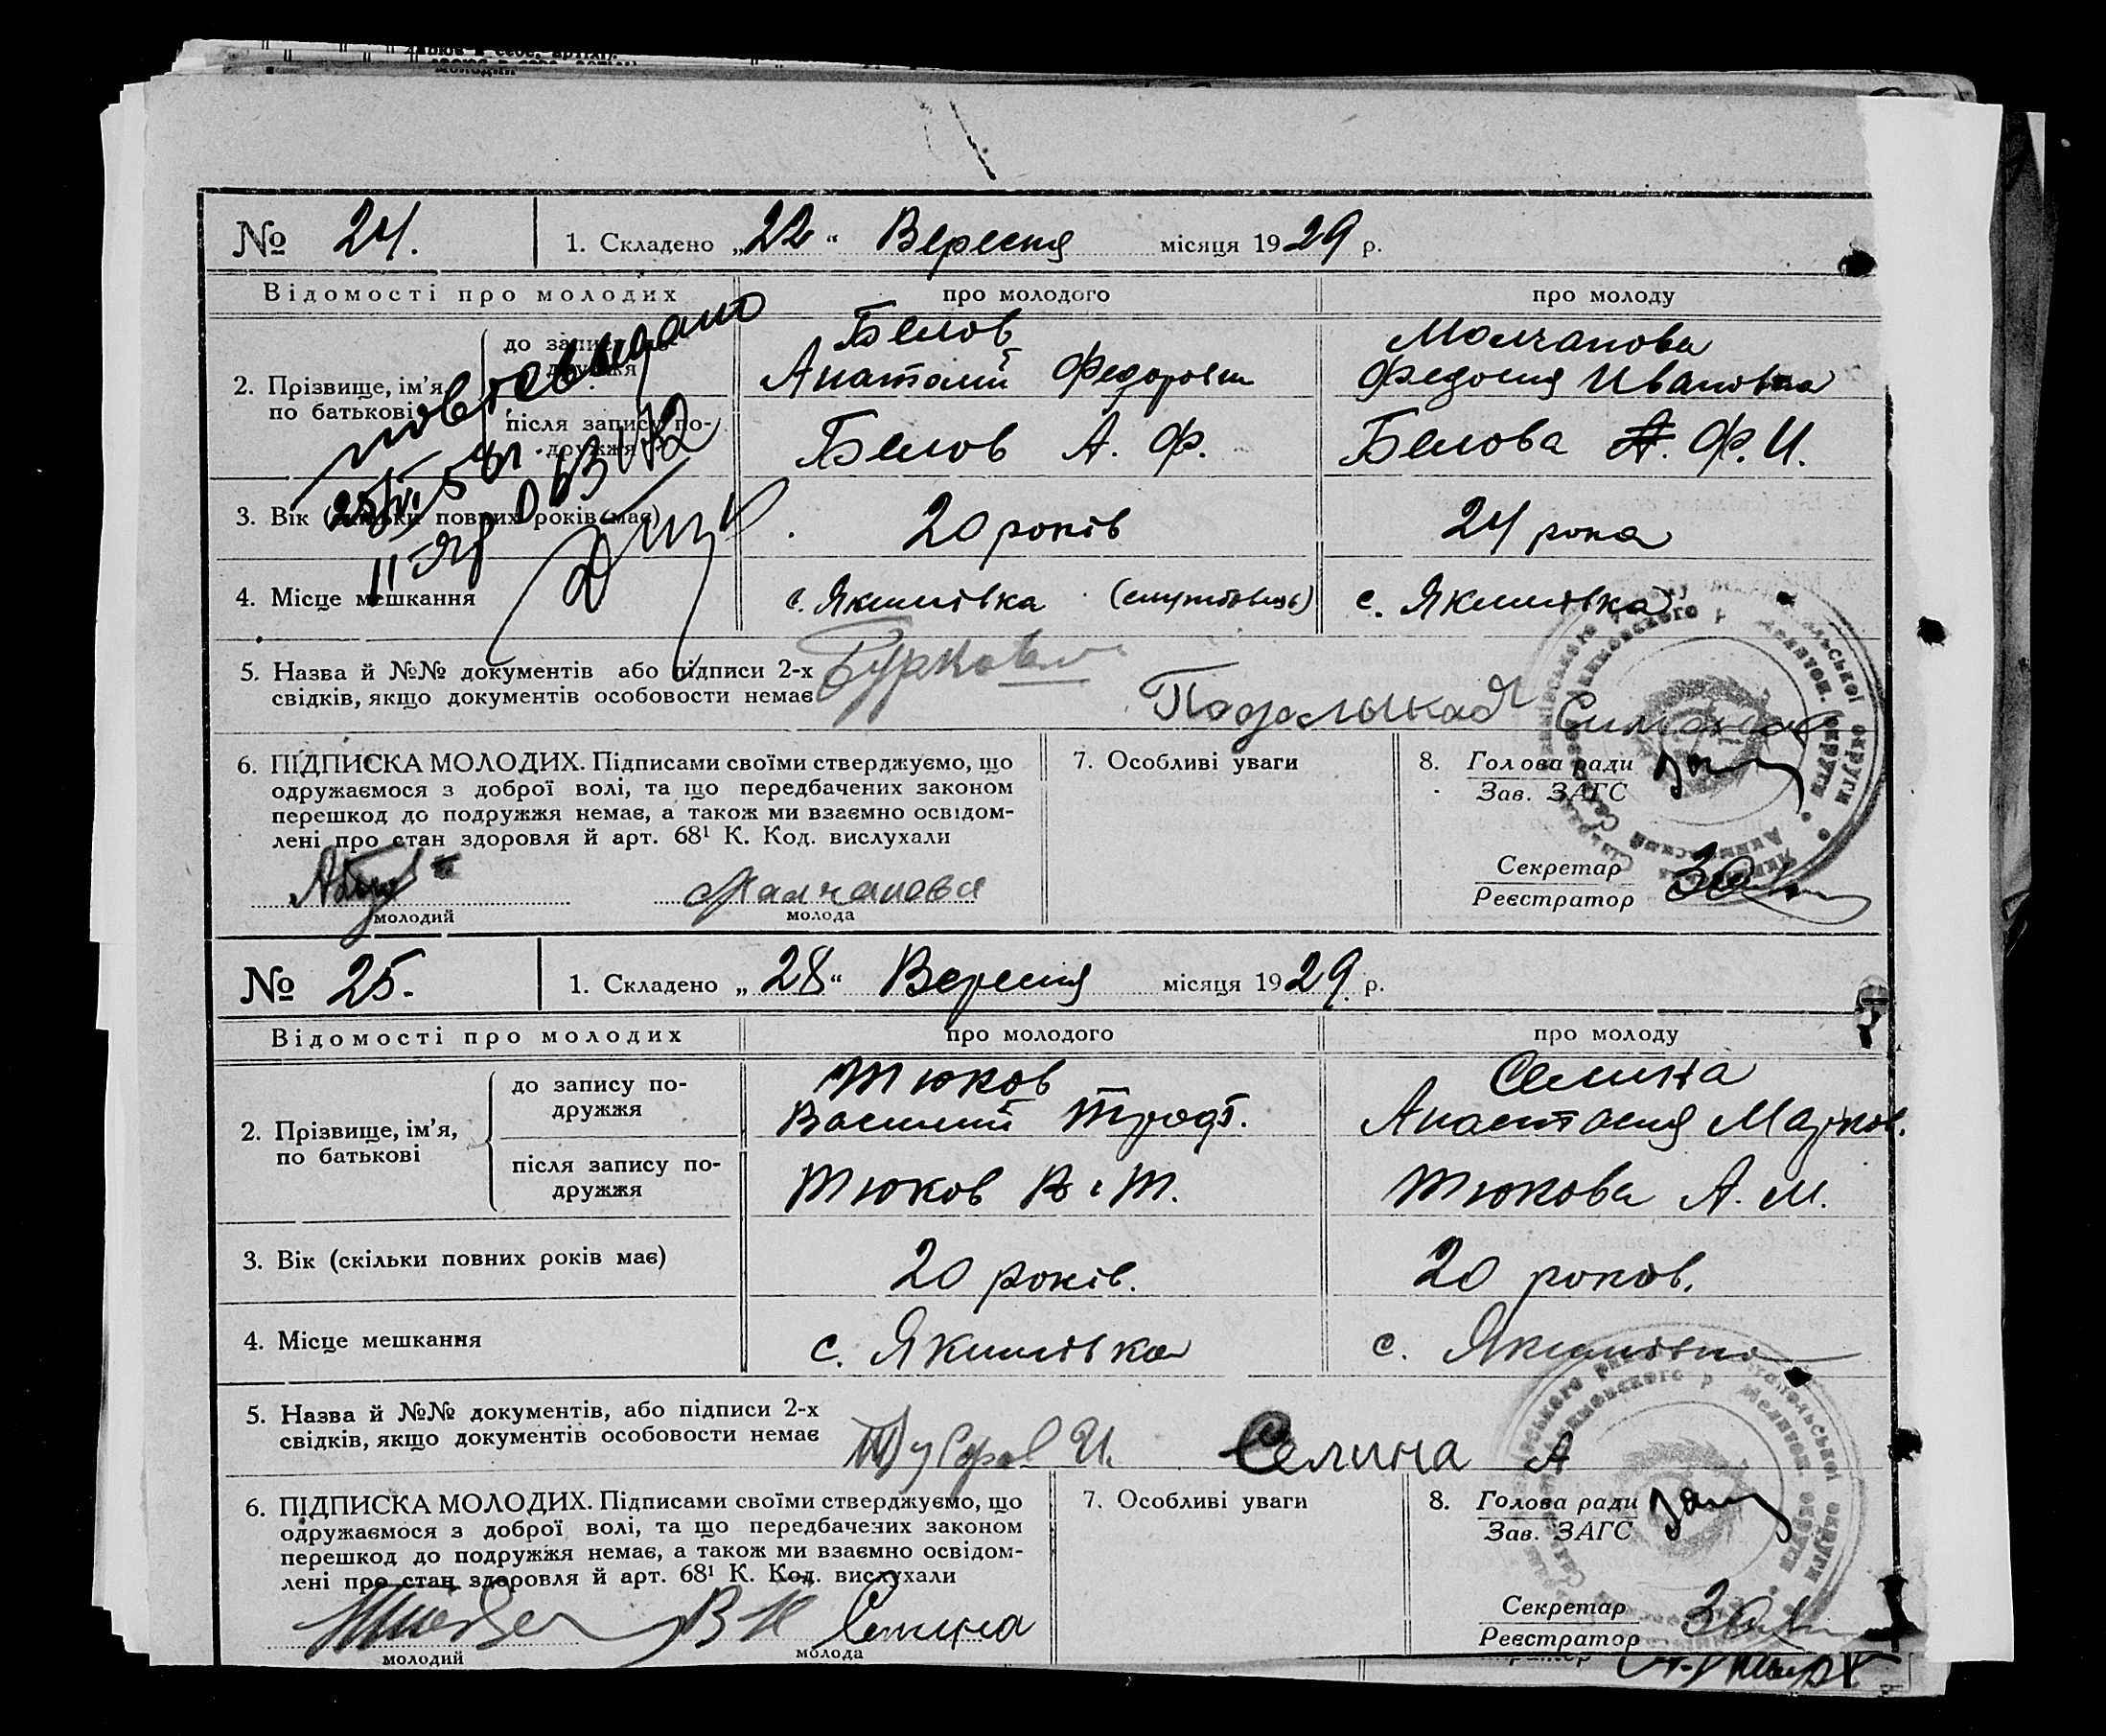 № 24. 1. Складено „22“ Вересня місяця 1929 р.
Відомості про молодих про молодого про молоду
2. Прізвище, ім’я, по батькові
до запису по-
дружжя
Белов
Анатолий Федорович
Молчанова
Федосия Ивановна
після запису по-
дружжя
Белов А. Ф.
Белова А. Ф. И.
3. Вік (скільки повних років має) 20 років 24 рока
4. Місце мешкання с. Якимівка с. Якимівка
повт. выдано
5. Назва й №№ документів або підписи 2-х
свідків, якщо документів особовости немає
6. ПІДПИСКА МОЛОДИХ. Підписами своїми стверджуємо, що
одружаємося з доброї волі, та що передбачених законом
перешкод до подружжя немає, а також ми взаємно освідом-
лені про стан здоровля й арт. 68¹ К. Код. вислухали
Молчанова
молодий молода
7. Особливі уваги
8. Голова ради
Зав. ЗАГС
Секретар
Реєстратор
№ 25. 1. Складено „28“ Вересня місяця 1929. р.
Відомості про молодих про молодого про молоду
2. Прізвище, ім’я,
по батькові
до запису по-
дружжя
Тюков
Василий Троф.
Селина
Анастасия Марков.
після запису по-
дружжя
Тюков В. Т.
Тюкова А. М.
3. Вік (скільки повних років має) 20 років. 20 роков.
4. Місце мешкання с. Якимівка с. Якимівка
5. Назва й №№ документів, або підписи 2-х
свідків, якщо документів особовости немає
Селина А
6. ПІДПИСКА МОЛОДИХ. Підписами своїми стверджуємо, що
одружаємося з доброї волі, та що передбачених законом
перешкод до подружжя немає, а також ми взаємно освідом-
лені про стан здоровля й арт. 68¹ К. Код. вислухали
Селина
молодий молода
7. Особливі уваги
8. Голова ради
Зав. ЗАГС
Секретар
Реєстратор